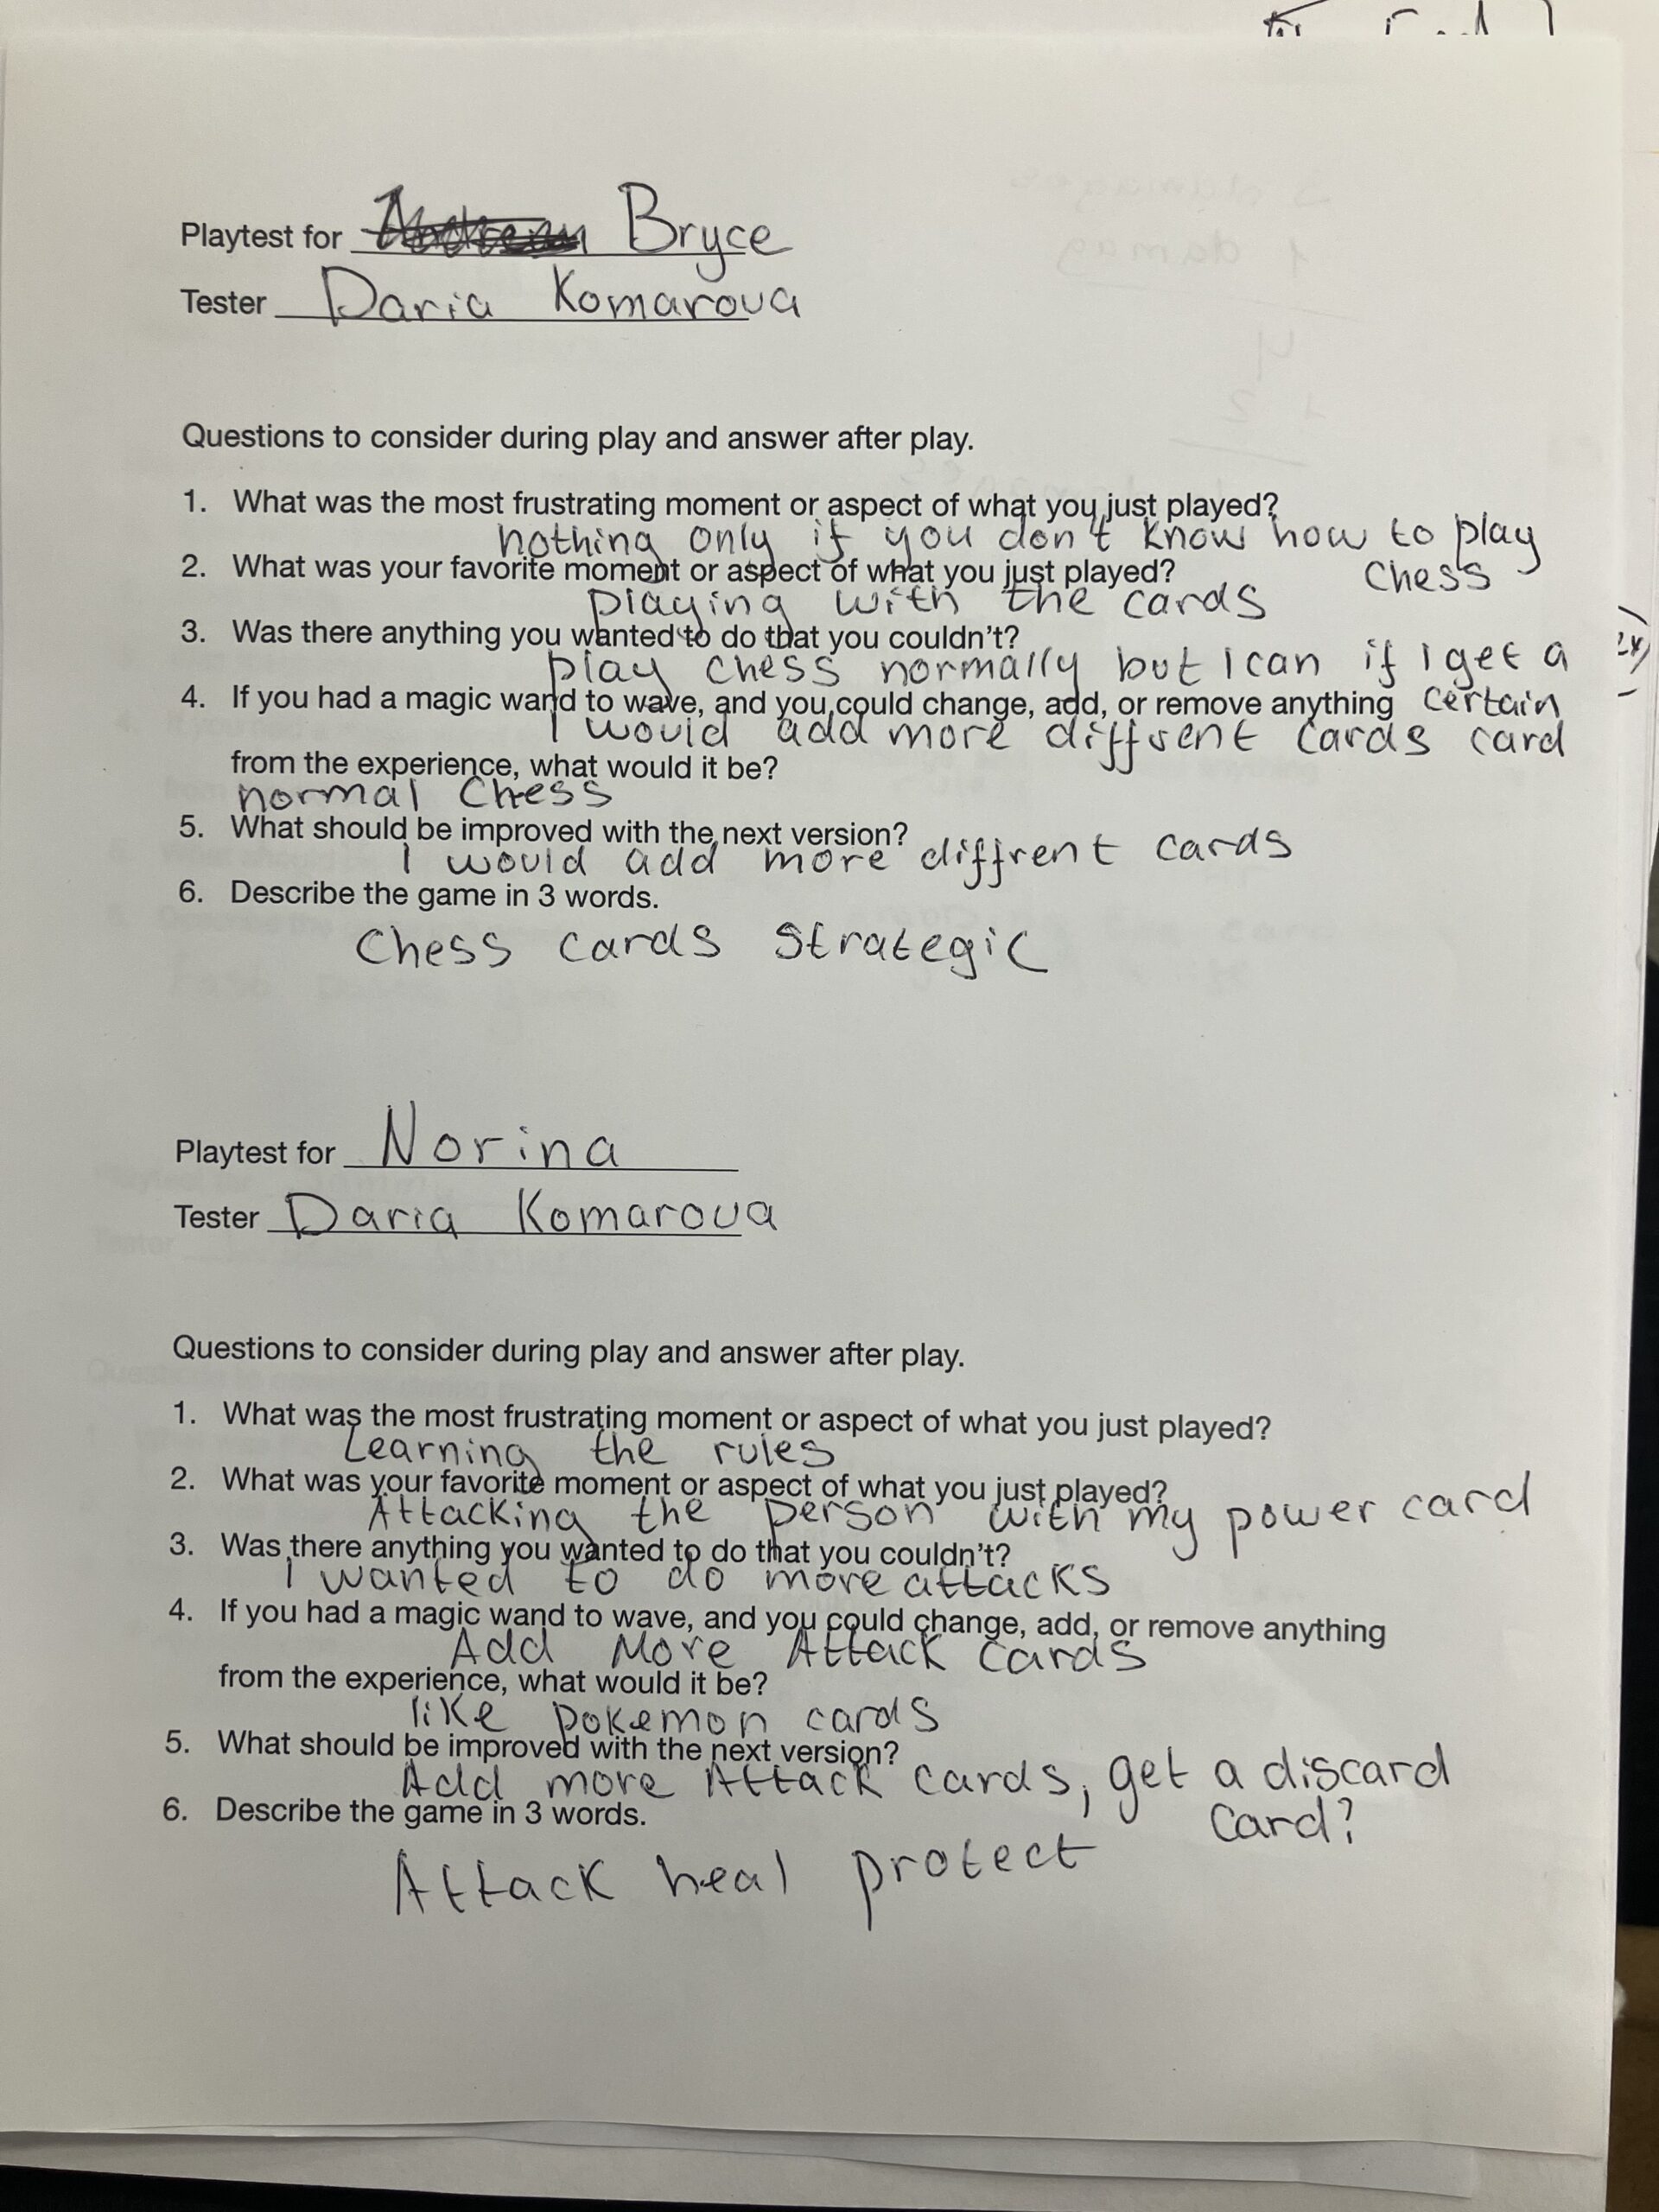 Playtest for Bryce
Tester Daria Komarova
Questions to consider during play and answer after play.
1. What was the most frustrating moment or aspect of what you just played?
nothing only if you don't know how to play
chess
2. What was your favorite moment or aspect of what you just played?
playing with the cards
3. Was there anything you wanted to do that you couldn't?
play chess normally but I can if I get a
certain
card
4. If you had a magic wand to wave, and you could change, add, or remove anything
I would add more diffrent cards
from the experience, what would it be?
normal Chess
5. What should be improved with the next version?
I would add more diffrent cards
6. Describe the game in 3 words.
Chess cards strategic
Playtest for Norina
Tester Daria Komarova
Questions to consider during play and answer after play.
1. What was the most frustrating moment or aspect of what you just played?
Learning the rules
2. What was your favorite moment or aspect of what you just played?
Attacking the person with my power card
3. Was there anything you wanted to do that you couldn't?
I wanted to do more attacks
4. If you had a magic wand to wave, and you could change, add, or remove anything
Add More Attack cards
from the experience, what would it be?
like pokemon cards
5. What should be improved with the next version?
Add more Attack cards, get a discard
card?
6. Describe the game in 3 words.
Attack heal protect